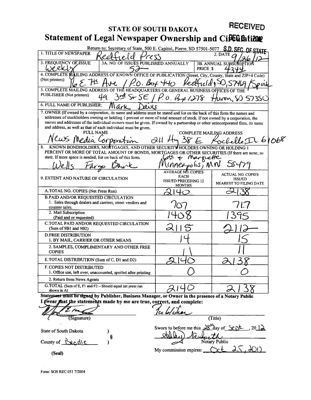 RECEIVED
STATE OF SOUTH DAKOTA
Statement of Legal Newspaper Ownership and Circulation
Return to: Secretary of State, 500 E. Capitol, Pierre, SD 57501-5077
S.D. SEC. OF STATE
1. TITLE OF NEWSPAPER
Redfield Press
2. DATE
9/26/12
3. FREQUENCY OF ISSUE
Weekly
3A. NO. OF ISSUES PUBLISHED ANNUALLY
52
3B. ANNUAL SUBSCRIPTION PRICE $
4. COMPLETE MAILING ADDRESS OF KNOWN OFFICE OF PUBLICATION (Street, City, County, State and ZIP+4 Code)
(Not printers)
16 E 7th Ave / P.O. Box 440 Redfield, SD 57469 Spink
5. COMPLETE MAILING ADDRESS OF THE HEADQUARTERS OR GENERAL BUSINESS OFFICES OF THE
PUBLISHER (Not printers)
49 3rd St SE / P.O. Box 1278 Huron, SD 57350
6. FULL NAME OF PUBLISHER:
Mark Davis
7. OWNER (If owned by a corporation, its name and address must be stated and also immediately thereafter the names and
addresses of stockholders owning or holding 1 percent or more of total amount of stock. If not owned by a corporation, the
names and addresses of the individual owners must be given. If owned by a partnership or other unincorporated firm, its name
and address, as well as that of each individual must be given.
FULL NAME
COMPLETE MAILING ADDRESS
News Media Corporation 211 Hwy 38 E Rochelle IL 61068
8. KNOWN BONDHOLDERS, MORTGAGES, AND OTHER SECURITY HOLDERS OWNING OR HOLDING 1
PERCENT OR MORE OF TOTAL AMOUNT OF BONDS, MORTGAGES OR OTHER SECURITIES (If there are none, so
state. If more space is needed, list on back of this form.
Wells Fargo Bank
& Marquette
Minneapolis, MN 55479
9. EXTENT AND NATURE OF CIRCULATION
AVERAGE NO. COPIES EACH ISSUED PRECEDING 12 MONTHS
ACTUAL NO. COPIES ISSUED NEAREST TO FILING DATE
A. TOTAL NO. COPIES (Net Press Run)
2140
2138
B. PAID AND/OR REQUESTED CIRCULATION
1. Sales through dealers and carriers, street vendors and
counter sales.
707
717
2. Mail Subscription
(Paid and or requested)
1408
1395
C. TOTAL PAID AND/OR REQUESTED CIRCULATION
(Sum of 9B1 and 9B2)
2115
2112
D. FREE DISTRIBUTION
1. BY MAIL, CARRIER OR OTHER MEANS
14
15
2. SAMPLES, COMPLIMENTARY AND OTHER FREE
COPIES
11
11
E. TOTAL DISTRIBUTION (Sum of C, D1 and D2)
2140
2138
F. COPIES NOT DISTRIBUTED
1. Office use, left over, unaccounted, spoiled after printing
0
0
2. Return from News Agents
G. TOTAL (Sum of E, F1 and F2 -- Should equal net press run
shown in A)
2140
2138
Statement must be signed by Publisher, Business Manager, or Owner in the presence of a Notary Public
I swear that the statements made by me are true, correct, and complete:
(Signature)
Publisher
(Title)
State of South Dakota )
Sworn to before me this 28 day of Sept, 2012
County of Beadle )
Notary Public
(Seal)
My commission expires: Oct 25, 2013
Form: SOS REC 051 7/2004